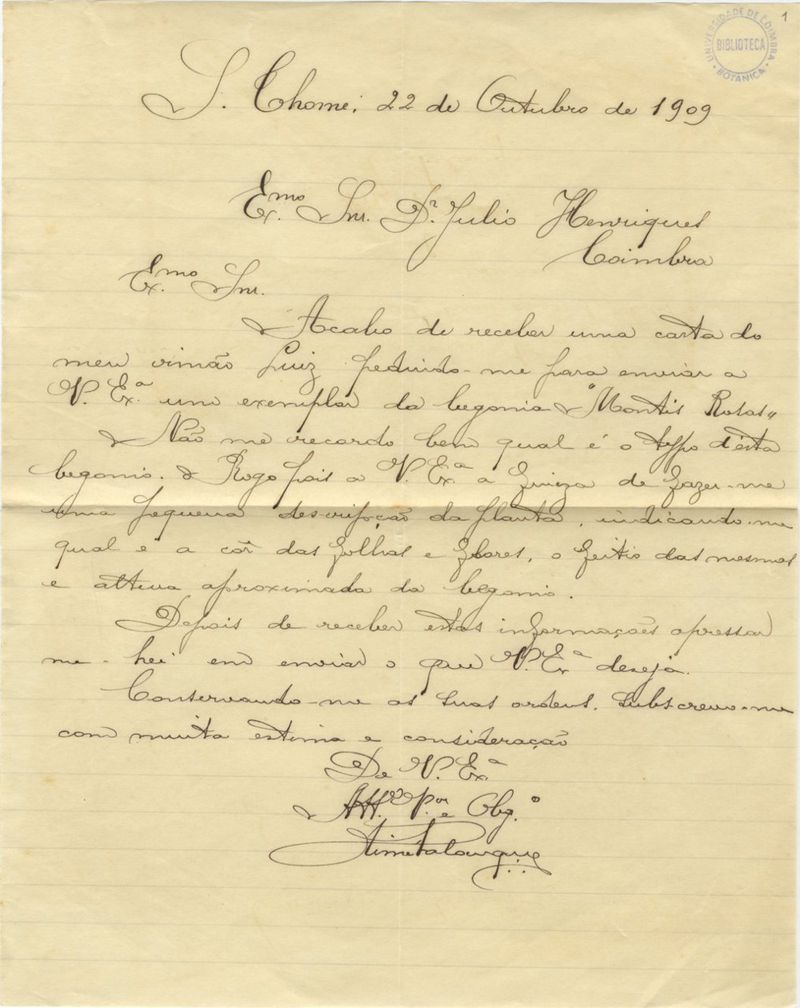 1
UNIVERSIDADE DE COIMBRA
BIBLIOTECA
BOTANICA
S. Thomé, 22 de Outubro de 1909
Ex.mo Snr. Dr. Julio Henriques
Coimbra
Ex.mo Snr.
Acabo de receber uma carta do
meu irmão Luiz pedindo-me para enviar a
V. Ex.a um exemplar da begonia "Montis Rosas"
Não me recordo bem qual é o typo d'esta
begonia. Rogo pois a V. Ex.a a fineza de fazer-me
uma pequena descripção da planta, indicando-me
qual é a côr das folhas e flores, o feitio das mesmas
e altura aproximada da begonia.
Depois de receber estas informações apressar
me-hei em enviar o que V. Ex.a deseja.
Conservando-me as suas ordens, subscrevo-me
com muita estima e consideração
De V. Ex.a
Att.o V.or e Obg.o